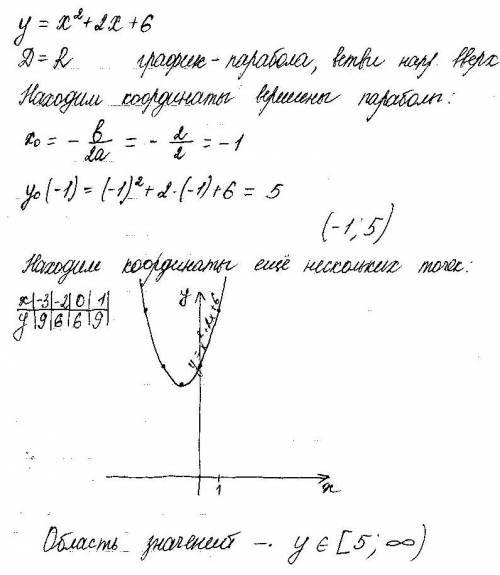 y = x² + 2x + 6
D = R график - парабола, ветви напр. вверх
Находим координаты вершины параболы:
x₀ = - b/2a = - 2/2 = -1
y₀(-1) = (-1)² + 2·(-1) + 6 = 5
(-1; 5)
Находим координаты ещё нескольких точек:
x | -3 | -2 | 0 | 1 |
y | 9 | 6 | 6 | 9 |
y
y = x² + 2x + 6
1
x
Область значений -. y ∈ [5; ∞)